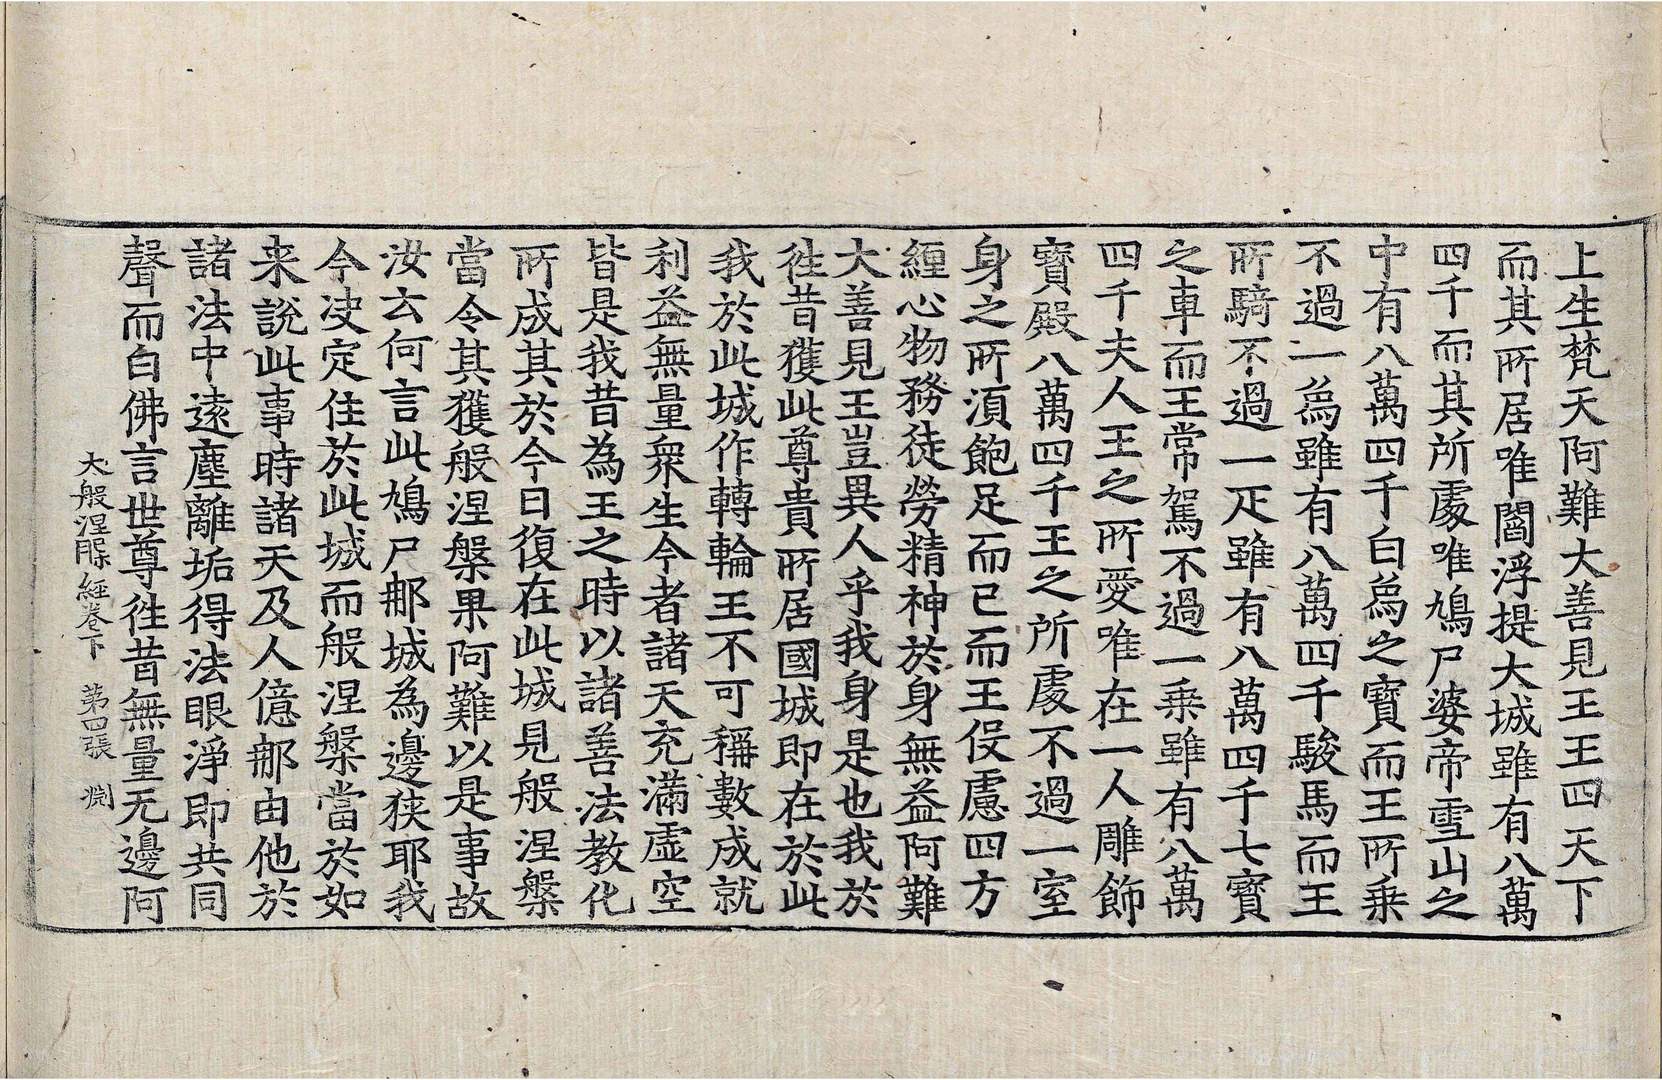 上生梵天阿難大善見王王四天下
而其所居唯閻浮提大城雖有八萬
四千而其所處唯鳩尸婆帝雪山之
中有八萬四千白為之寶而王所乗
不過一為雖有八萬四千駿馬而王
所騎不過一疋雖有八萬四千七寶
之車而王常駕不過一乗雖有八萬
四千夫人王之所愛唯在一人雕飾
寶殿八萬四千王之所處不過一室
身之所湏飽足而已而王伇慮四方
纏心物務徒勞精神於身無益阿難
大善見王豈異人乎我身是也我於
徃昔獲此尊貴所居國城即在於此
我於此城作轉輪王不可稱數成就
利益無量衆生今者諸天充滿虛空
皆是我昔為王之時以諸善法教化
所成其於今日復在此城見般涅槃
當令其獲般涅槃果阿難以是事故
汝云何言此鳩尸郍城為邊狹耶我
今决定住於此城而般涅槃當於如
来說此事時諸天及人億郍由他於
諸法中遠塵離垢得法眼淨即共同
聲而白佛言世尊徃昔無量无邊阿
大般涅槃經卷下 第四張 渕